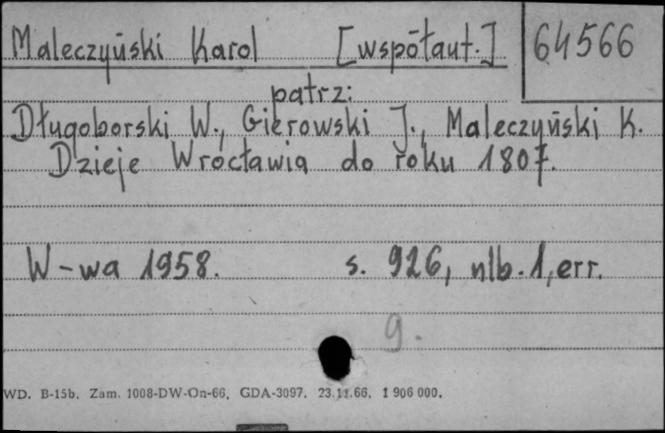 Maleczyński Karol [współaut.] 64566
patrz:
Długoborski W., Gierowski J., Maleczyński K.
Dzieje Wrocławia do roku 1807.
W-wa 1958. s. 926, nlb. 1, err.
g.
WD. B-15b. Zam. 1008-DW-On-66. GDA-3097. 23.11.66. 1 906 000.